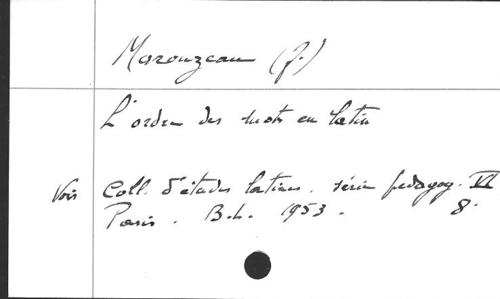 Marouzeau (J.)
L'ordre des mots en latin
Voir Coll. d'études latines. série pédagog. VI
Paris. B.L. 1953. 8°